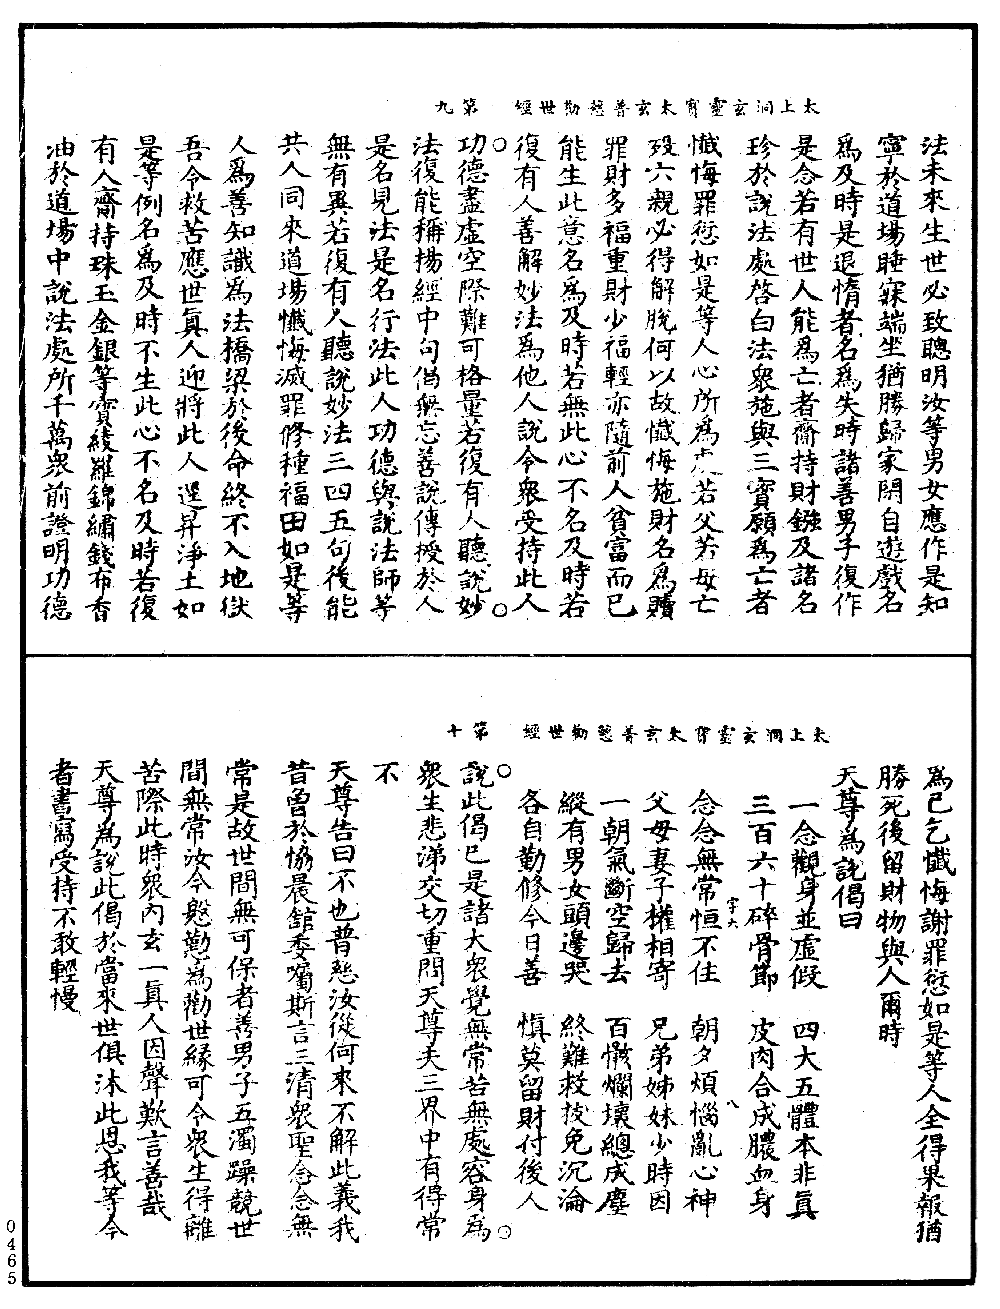 太上洞玄靈寶太玄普慈勸世經　第九
法未來生世必致聰明汝等男女應作是知
寧於道場睡寐端坐猶勝歸家閑自遊戲名
為及時是退惰者名為失時諸善男子復作
是念若有世人能為亡者齋持財鏹及諸名
珍於說法處啓白法衆施與三寶願為亡者
懺悔罪愆如是等人心所為處若父若母亡
歿六親必得解脫何以故懺悔施財名為贖
罪財多福重財少福輕亦隨前人貧富而已
能生此意名為及時若無此心不名及時若
復有人善解妙法為他人說令衆受持此人
功德盡虛空際難可格量若復有人聽說妙
法復能稱揚經中句偈無忘善說傳授於人
是名見法是名行法此人功德與說法師等
無有異若復有人聽說妙法三四五句後能
共人同來道場懺悔滅罪修種福田如是等
人為善知識為法橋梁於後命終不入地獄
吾令救苦應世真人迎將此人遷昇淨土如
是等例名為及時不生此心不名及時若復
有人齋持珠玉金銀等寶綾羅錦繡錢布香
油於道場中說法處所千萬衆前證明功德
太上洞玄靈寶太玄普慈勸世經　第十
為已乞懺悔謝罪愆如是等人全得果報猶
勝死後留財物與人爾時
天尊為說偈曰
一念觀身並虛假　四大五體本非真
三百六十碎骨節　皮肉合成膿血身
字六　八
念念無常恒不住　朝夕煩惱亂心神
父母妻子權相寄　兄弟姊妹少時因
一朝氣斷空歸去　百骸爛壞總成塵
縱有男女頭邊哭　終難救拔免沉淪
各自勤修今日善　慎莫留財付後人
說此偈已是諸大衆覺無常苦無處容身為
衆生悲涕交切重問天尊夫三界中有得常
不
天尊告曰不也普慈汝從何來不解此義我
昔曾於協晨舘委囑斯言三清衆聖念念無
常是故世間無可保者善男子五濁躁競世
間無常汝今慇懃為勸世緣可令衆生得離
苦際此時衆內玄一真人因聲歎言善哉
天尊為說此偈於當來世俱沐此恩我等今
者書寫受持不敢輕慢
0465